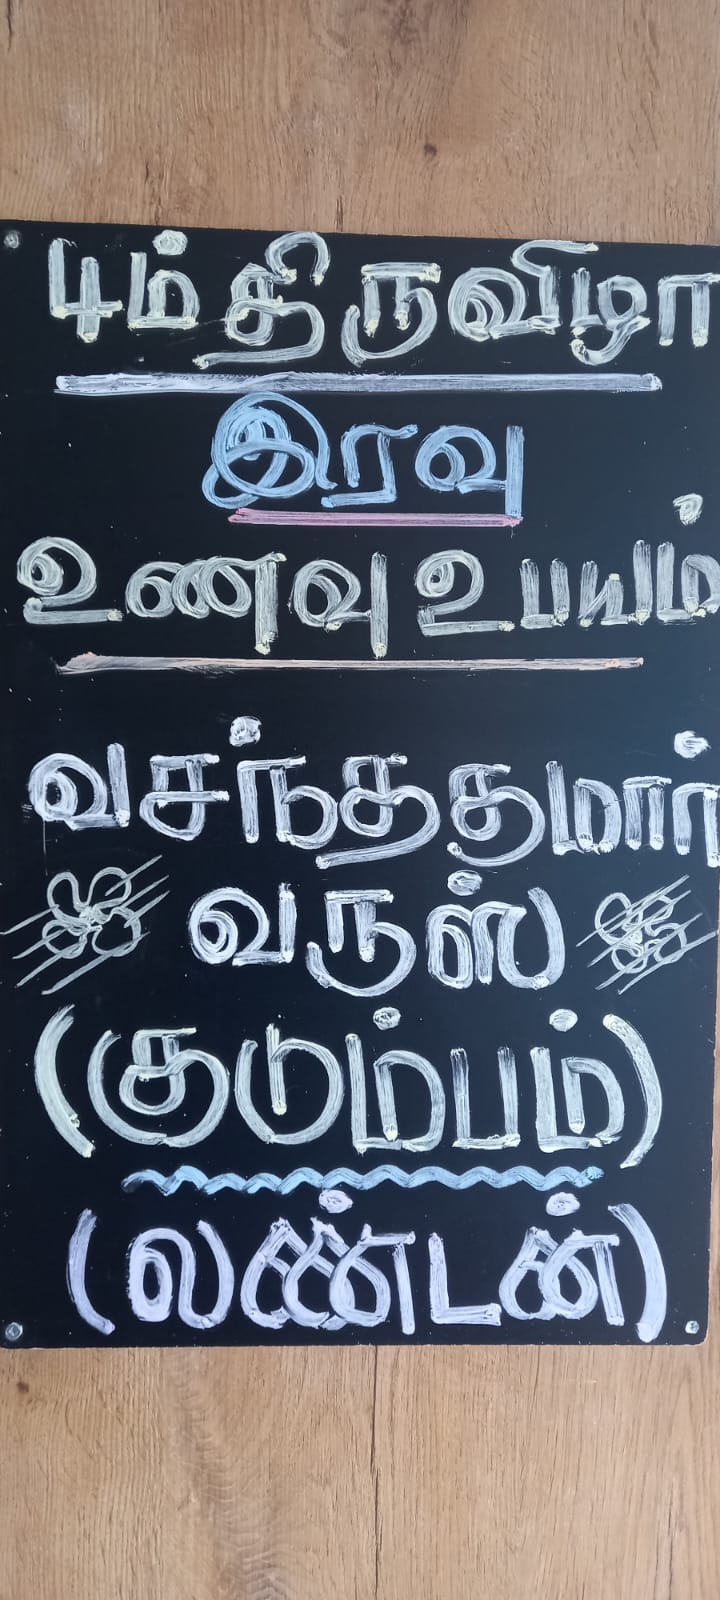 4ம் திருவிழா
இரவு
உணவு உபயம்
வசந்ததமார்
வருஸ்
(குடும்பம்)
(லண்டன்)